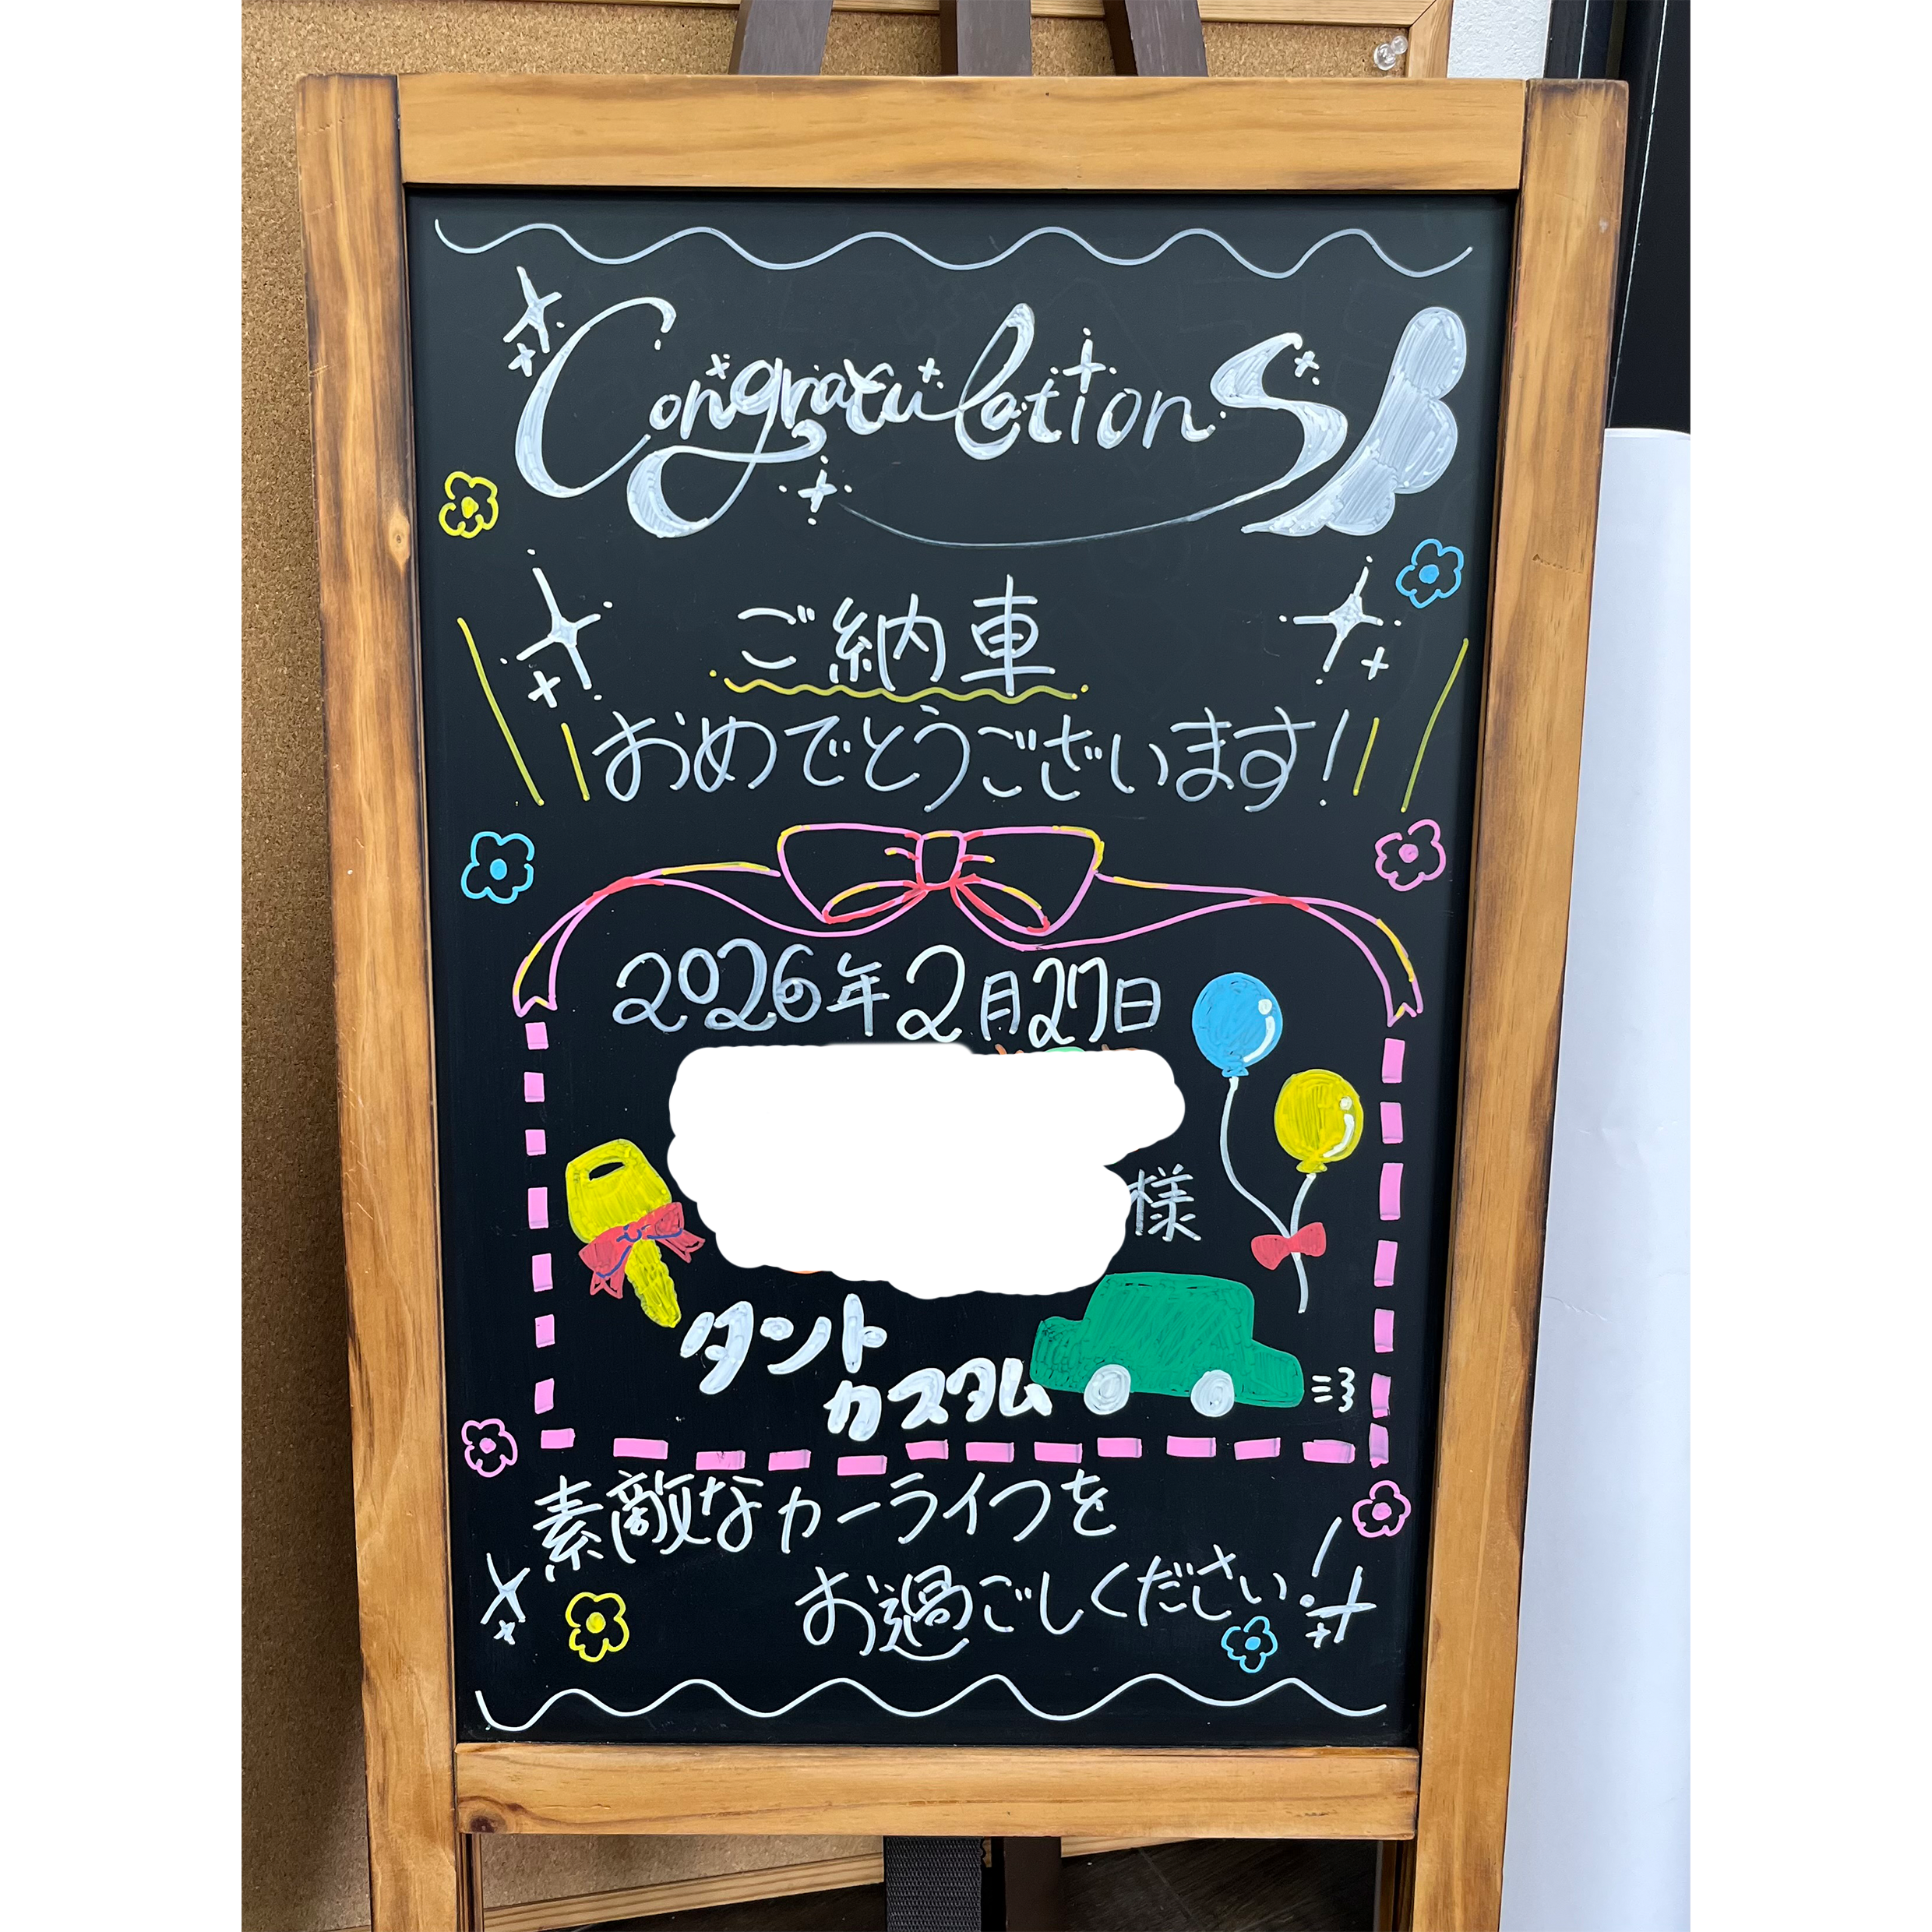 Congratulations
ご納車
おめでとうございます!
2026年2月27日
様
タント
カスタム
素敵なカーライフを
お過ごしください!